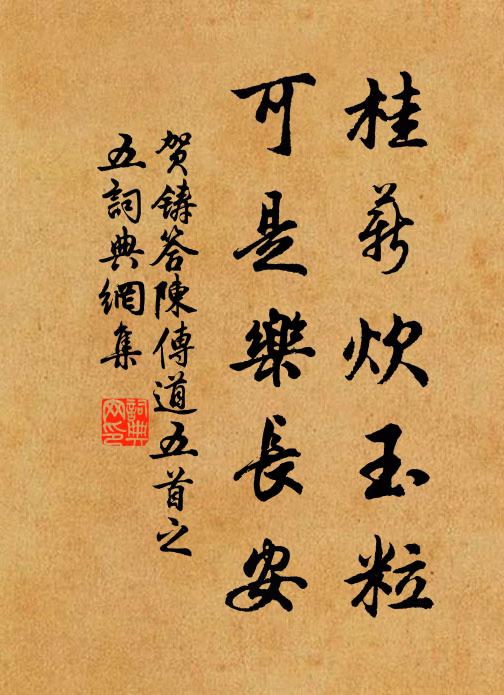 桂薪炊玉粒
可是樂長安
贺鑄答陳傳道五首之
五詞典網集
詞典
网印